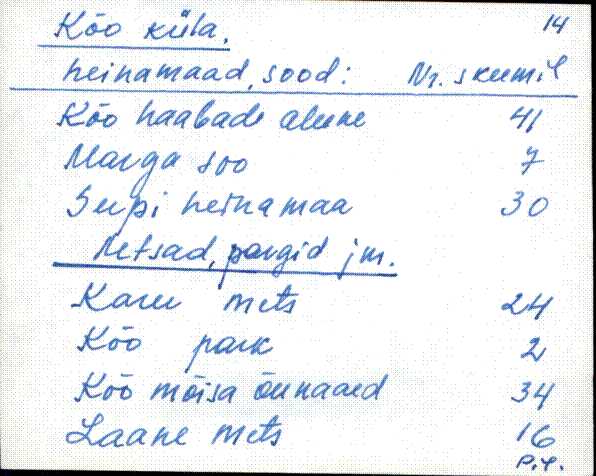 Kõo küla. 14
heinamaad, sood: Nr. skeemil
Kõo haabade alune 41
Marga soo 7
Seepi heinamaa 30
Metsad, pargid jm.
Karu mets 24
Kõo park 2
Kõo mõisa õunaaed 34
Laane mets 16
P.Y.